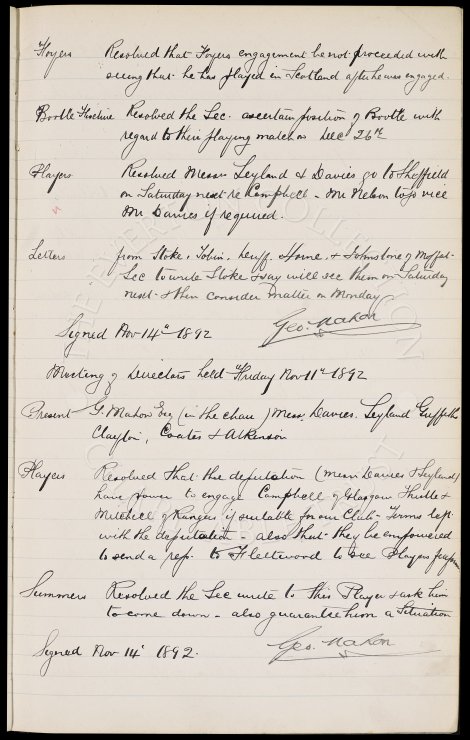 Foyers Resolved that Foyers engagement be not proceeded with
seeing that he has played in Scotland after he was engaged.
Bootle Fixture Resolved the Sec. ascertain position of Bootle with
regard to their playing match on Dec 26th
Players Resolved Messrs Leyland & Davies go to Sheffield
on Saturday next re Campbell - Mr Nelson to go vice
Mr Davies if required.
Letters from Stoke, Tobin, Horne, & Johnstone of Moffat.
Sec to write Stoke & say will see them on Saturday
next & then consider matter on Monday
Signed Nov 14th 1892 Geo. Mahon
Meeting of Directors held Friday Nov 11th 1892
Present G. Mahon Esq (in the chair) Messrs Davies, Leyland Griffiths
Clayton, Coates & Atkinson
Players Resolved that the deputation (Messrs Davies & Leyland)
have power to engage Campbell of Glasgow Thistle &
Mitchell of Rangers if suitable for our Club - Terms left
with the deputation - also that they be empowered
to send a rep. to Fleetwood to see Players
Summers Resolved the Sec write to this Player & ask him
to come down - also guarantee him a Situation
Signed Nov 14th 1892. Geo. Mahon
THE EVERTON COLLECTION